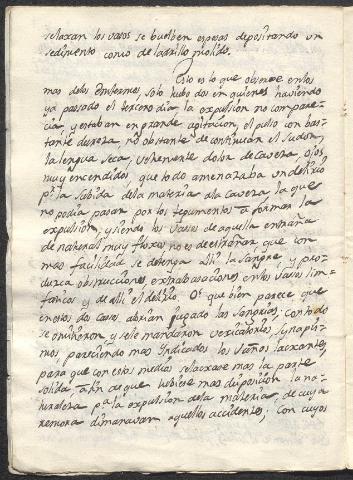 relaxan los vasos se buelben espesas depositando un
sedimento como de ladrillo molido.
Esto es lo que observe en los
mas delos Enfermos solo hubo dos en quienes haviendo
ya pasado el tercero dia la expulsion no compare-
cia, y estaban en grande agitacion, el pulso con bas-
tante dureza, no obstante de continuar el sudor,
la lengua seca, vehemente dolor de Caveza, ojos
muy encendidos, que todo amenazaba un delirio
pr. la subida dela materia ala Caveza la que
no podia pasar por los tegumentos a formar la
expulsion, y siendo los vasos de aquella entraña
de natural muy floxos no es de estrañar que con
mas facilidad se detenga alli la sangre y pro-
duzca obstrucciones, extrabasaciones en los vasos lim-
faticos y de alli el delirio. Oi que bien parece que
en estos dos casos abrian jugado las sangrias; con todo
se omitieron, y se le mandaron vexicatorios, synapis-
mos pareciendo mas Indicados los Vaños laxantes,
para que con estos medios relaxase mas la parte
solida, a fin de que ubiese mas disposicion la na-
turaleza pa. la expulsion dela materia, de cuya
remora dimanavan aquellos accidentes, con cuyos